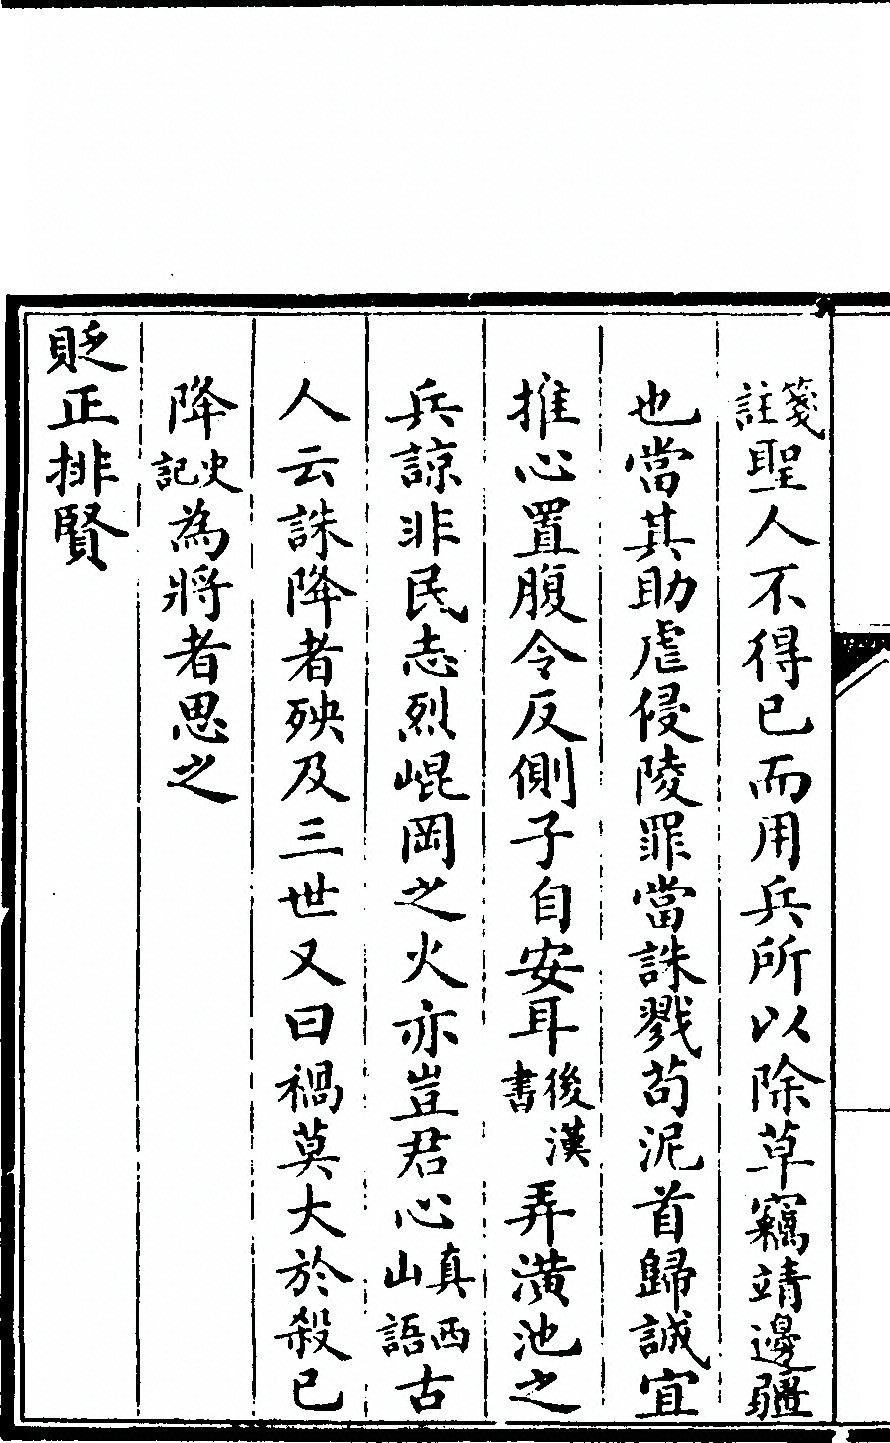 箋註聖人不得已而用兵所以除草竊靖邊疆
也當其助虐侵陵罪當誅戮苟泥首歸誠宜
推心置腹令反側子自安耳後漢書弄潢池之
兵諒非民志烈崐岡之火亦豈君心真西山語古
人云誅降者殃及三世又曰禍莫大於殺已
降史記為將者思之
貶正排賢